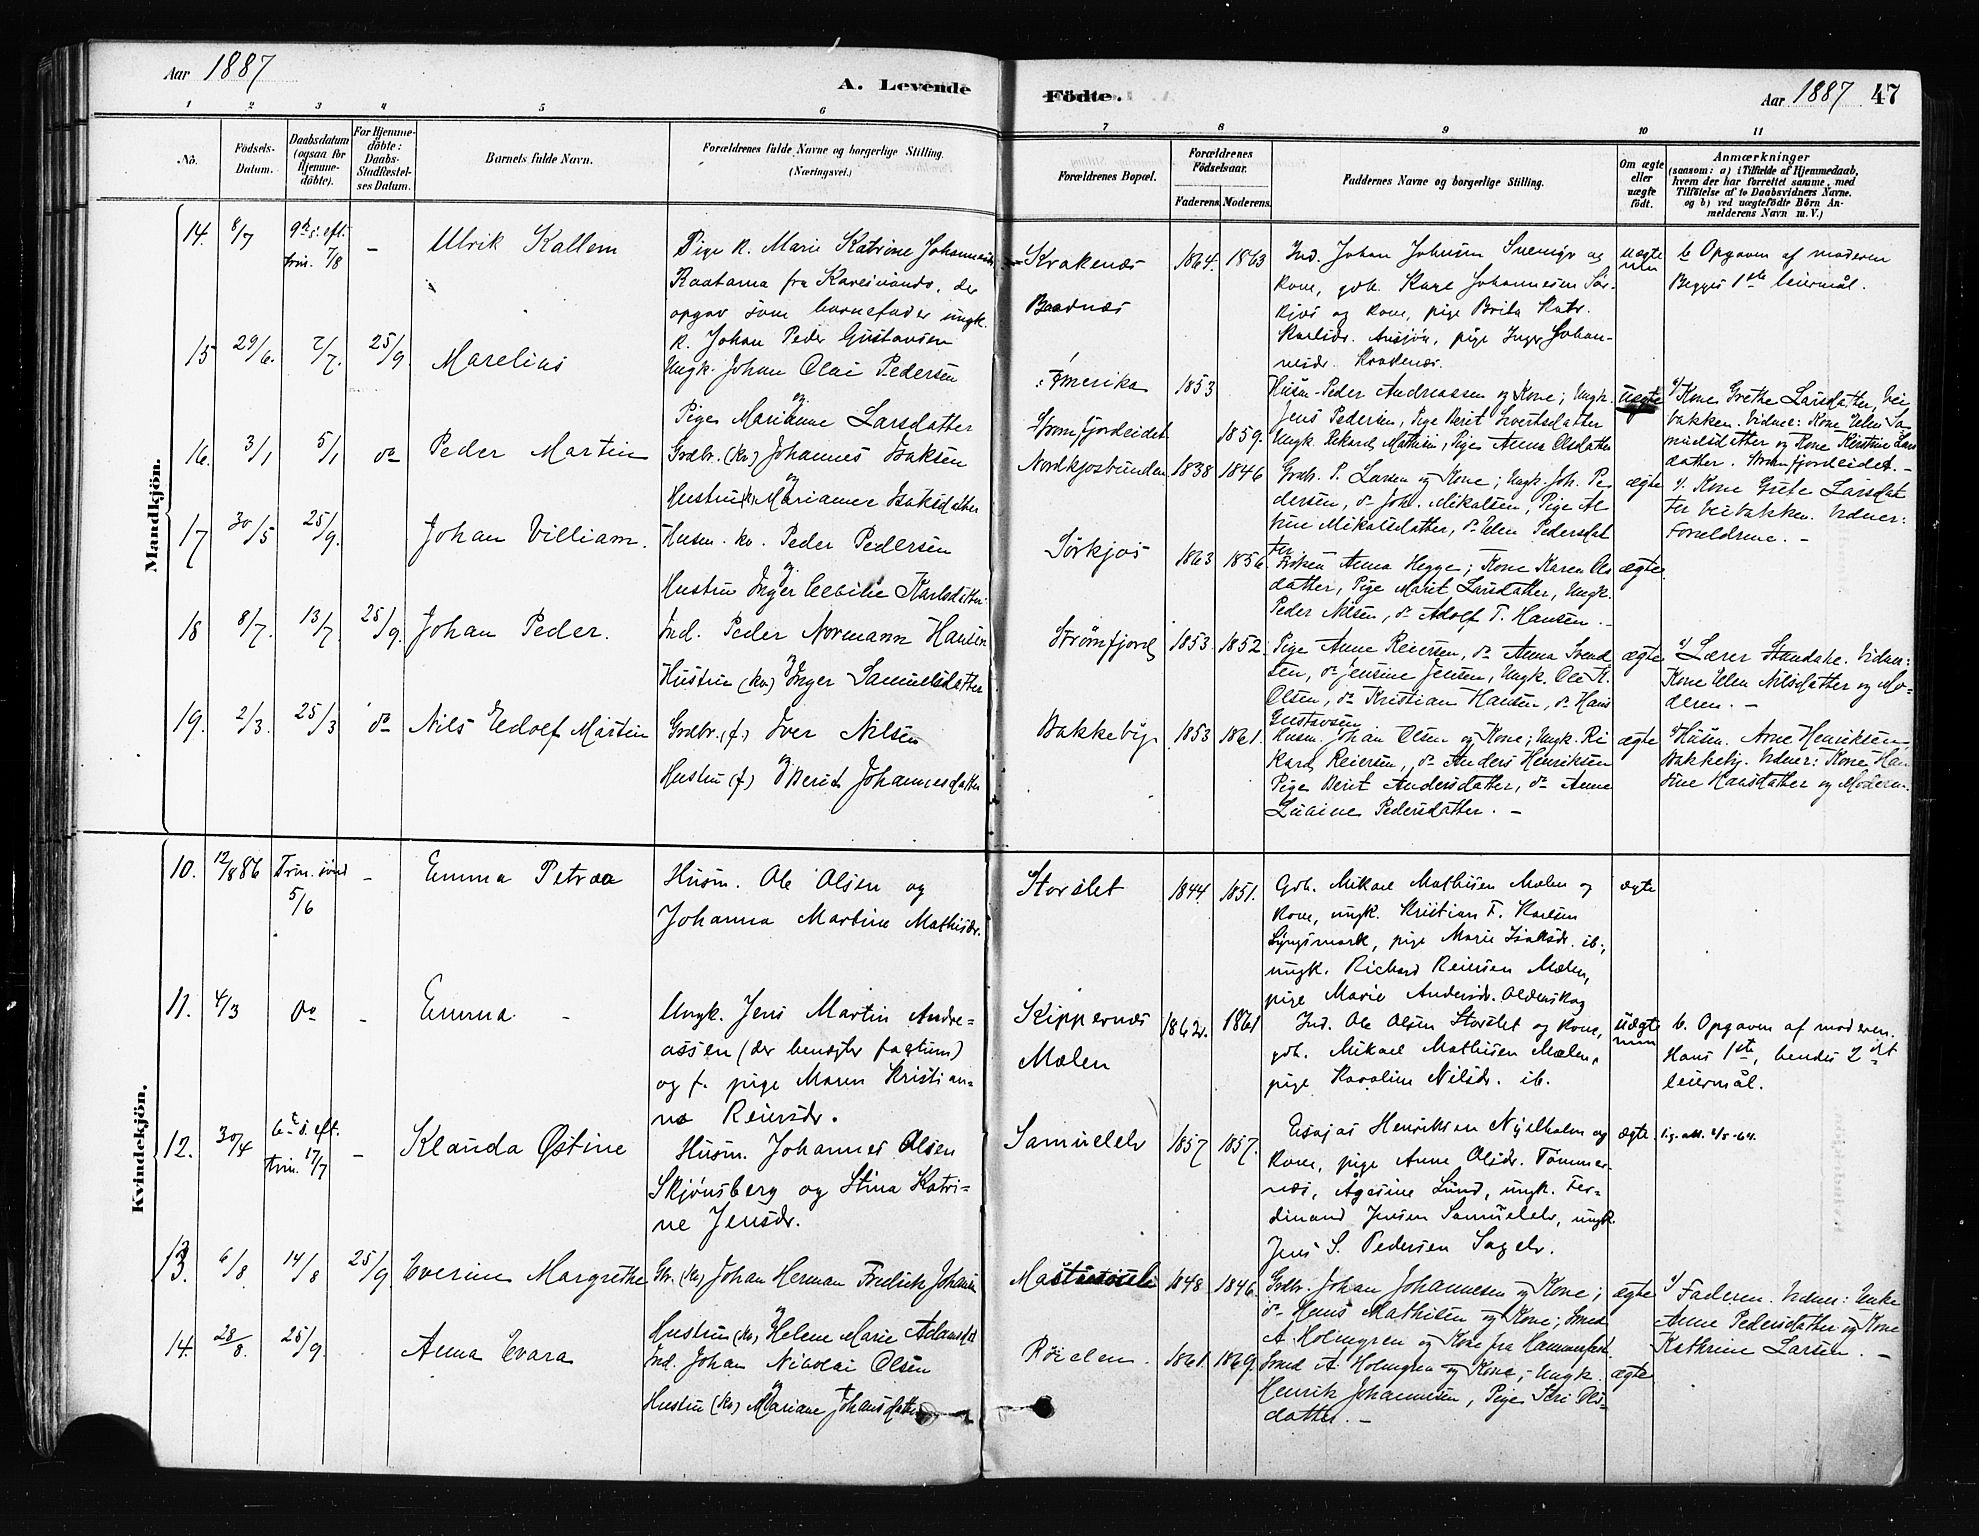 Aar 1887
A. Levende
Födte.
Aar 1887 47
1 2 3 4 5 6 7 8 9 10 11
No.
Födsels-Datum.
Daabsdatum (ogsaa for Hjemme-döbte).
For Hjemme-döbte: Daabs-Stadfæstelses Datum.
Barnets fulde Navn.
Forældrenes fulde Navne og borgerlige Stilling.
(Næringsvei.)
Forældrenes Bopæl.
Forældrenes Födselsaar.
Faderens. Moderens.
Faddernes Navne og borgerlige Stilling.
Om ægte eller uægte födt.
Anmærkninger
(saasom: a) i Tilfælde af Hjemmedaab, hvem der har forrettet samme, med Tilföielse af to Daabsvidners Navne. og b) ved uægtefödte Börn Anmelderens Navn m. V.)
Mandkjön.
14. 8/7 9de s. eft. trin. 7/8 – Ulrik Kallem
Pige k. Marie Katrine Johannesdr.
Raatama fra Karesuando, der
opgav som barnefader ungk.
k. Johan Peder Gustavsen
Krakenæs
Baadnæs
1864. 1863
Ind. Johan Johnsen Snemyr og
kone, gdb. Karl Johannesen Sør-
kjos og kone, pige Brita Katr.
Karlsdr. , pige Inger Johan-
nesdr. Kraakenæs.
uægte
b. Opgaven af moderen
Begges 1ste leiermål.
15 29/6. 2/7. 25/9. Marelius
Ungk. Johan Olai Pedersen
og
Pige Marianne Larsdatter
Amerika 1853
Strømfjordeidet 1859.
Husm. Peder Andreassen og Kone; Ungk.
Jens Pedersen, Pige Berit Sivertsdatter
Ungk. Rikard Mathisen, Pige Anna Olsdatter
uægte
a/ Kone Grethe Larsdatter, Vei
bakken. Vidner: Kone Elen Sa
muelsdatter og Kone Kirstine Lars
datter. Strømfjordeidet. –
16. 3/1 5/1 do Peder Martin
Grdbr. (kv) Johannes Isaksen
og
Hustru (kv) Marianne Isaksdatter
Nordkjosbunden 1838 1846
Grdb. P. Larsen og Kone; Ungk. Joh. Pe
dersen, do Joh. Mikalsen, Pige Al
vine Mikalsdatter, do Elen Pedersdat
ter
ægte
a/. Kone Grete Larsdat
ter Veibakken. Vidner:
Forældrene. –
17 30/5 25/9. Johan Villiam.
Husm. kv. Peder Pedersen
og
Hustru Inger Cecilie Karlsdatter.
Sørkjos 1863 1856.
Frøken Anna Hegge; Kone Karen Ols
datter, Pige Marit Larsdatter, Ungk.
Peder Nilsen, do Adolf T. Hansen. –
ægte
18 8/7. 13/7. 25/9. Johan Peder.
Ind. Peder Normann Hansen
og
Hustru (kv) Inger Samuelsdatter
Strømfjord 1853. 1852.
Pige Anne Reiersen, do Anna Svend
sen, do Jensine Jensen, Ungk. Ole K.
Olsen, do Kristian Hansen, do Hans
Gustavsen
ægte
a/ Lærer Standahl. Vidner:
Kone Elen Nilsdatter og Mo-
deren. –
19. 2/3. 25/3 do Nils Edolf Martin
Grdbr. (f.) Iver Nilsen
og
Hustru (f) Berit Johannesdatter
Bakkeby 1853 1861.
Husm. Johan Olsen og Kone; Ungk. Ri
kard Reiersen, do Anders Henriksen
Pige Berit Andersdatter, do Anne
Lusine Pedersdatter. –
ægte
a/ Husm. Arne Henriksen
Bakkeby. Vidner: Kone Han
sine Hansdatter og Moderen.
Kvindekjön.
10. 12/8 86 Trin. sönd 5/6 – Emma Petrea
Husm. Ole Olsen og
Johanna Martine Mathisdr.
Storslet 1844. 1851.
Gdb. Mikael Mathisen Mælen og
kone, ungk. Kristian F. Karlsen
Lyngsmark, pige Marie Isaksdr. ib.,
ungk. Richard Reiersen Mælen,
pige Marie Andersdr. Oldenskog
ægte
11. 4/3 do – Emma –
Ungk. Jens Martin Andre-
assen (der benægter factum)
og f. pige Maren Kristian-
na Reiersdr.
Kippernæs
Mælen
1862. 1861
Ind. Ole Olsen Storslet og kone,
gdb. Mikael Mathisen Mælen,
pige Karoline Nilsdr. ib.
uægte
b. Opgaven af moderen.
Hans 1ste, hendes 2det
leiermål.
12. 30/4 6te s. eft. trin. 17/7 – Klauda Østine
Husm. Johannes Olsen
Skjønsberg og Stina Katri-
ne Jensdr.
Samuelelv 1857 1857.
Esajas Henriksen Nyelholm og
kone, pige Anne Olsdr. Tømmer-
næs, Agesine Lund, ungk. Fer-
dinand Jensen Samuelelv, ungk.
Jens S. Pedersen Sagelv.
ægte.
13. 6/8 14/8 25/9 Everine Margrethe
Gbr. (kv) Johan Herman Fredrik Johansen
og
Hustru (kv) Helene Marie Adamsdt
1848 1846.
Grdbr. Johan Johannesen og Kone;
do Hans Mathisen og Kone; Smed
A. Holmgren og Kone fra Hammerfest.
ægte
a/ Faderen. Vidner: Enke
Anne Pedersdatter og Kone
Kathrine Larsen. –
14. 28/8. 25/9. Anna Evara
Ind. Johan Nicolai Olsen
og
Hustru (kv) Mariane Johansdatter
Røielen. 1861. 1869.
Smed A. Holmgren og Kone; Ungk.
Henrik Johannesen, Pige Seri Ols-
datter. –
ægte